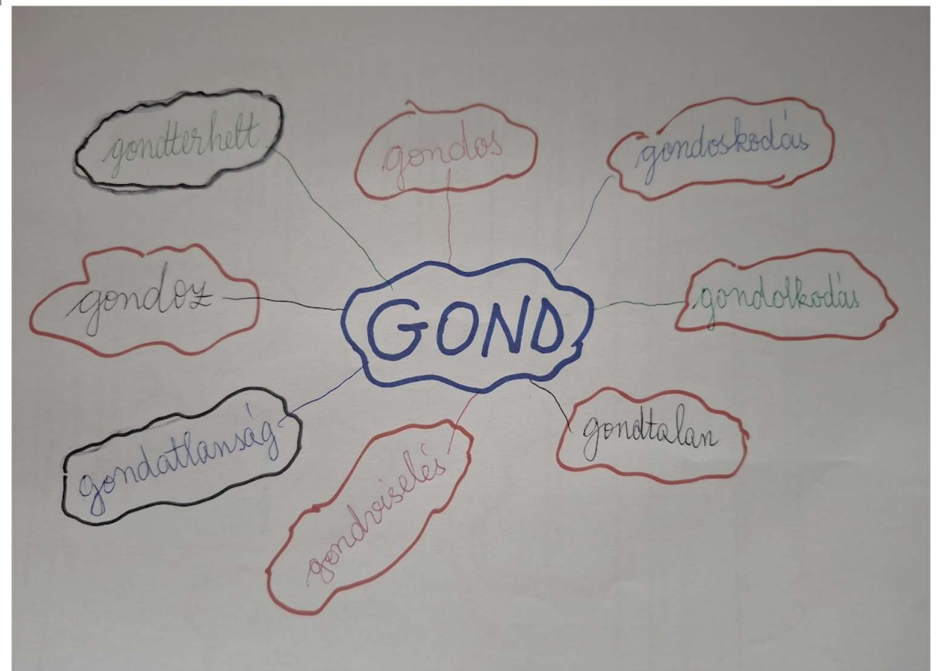 gondterhelt
gondos
gondoskodás
gondoz
GOND
gondolkodás
gondatlanság
gondviselés
gondtalan